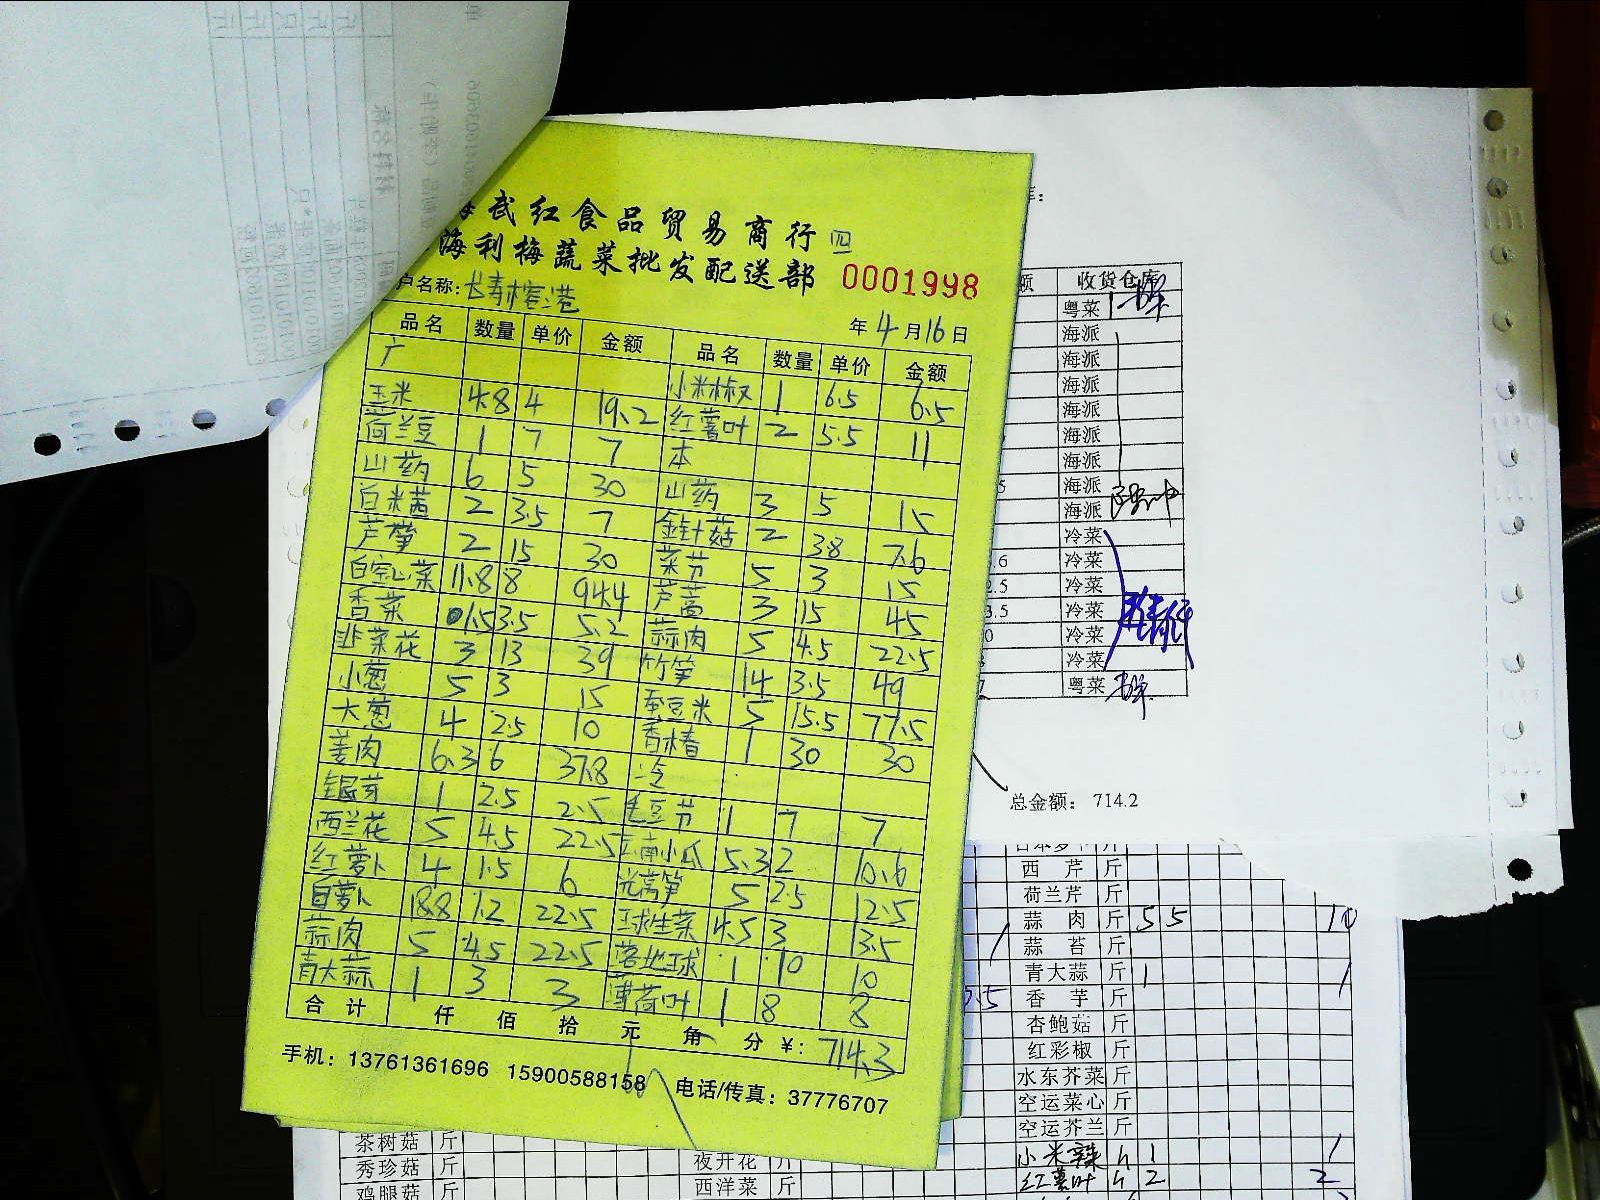 武红食品贸易商行 四
海利梅蔬菜批发配送部 0001998
户名称: 长青榕港
年 4 月 16 日
品名 数量 单价 金额 品名 数量 单价 金额
广 小米椒 1 6.5 6.5
玉米 4.8 4 19.2 红薯叶 2 5.5 11
荷兰豆 1 7 7 本
山药 6 5 30 山药 3 5 15
白米茜 2 3.5 7 金针菇 2 3.8 7.6
芦笋 2 15 30 菜节 5 3 15
白空心菜 11.8 8 94.4 芦蒿 3 15 45
香菜 1.5 3.5 5.2 蒜肉 5 4.5 22.5
韭菜花 3 13 39 竹笋 14 3.5 49
小葱 5 3 15 蚕豆米 5 15.5 77.5
大葱 4 2.5 10 香椿 1 30 30
姜肉 6.3 6 37.8 冷
银芽 1 2.5 2.5 毛豆节 1 7 7
西兰花 5 4.5 22.5 云南小瓜 5.3 2 10.6
红萝卜 4 1.5 6 光莴笋 5 2.5 12.5
白萝卜 18.8 1.2 22.5 球生菜 4.5 3 13.5
蒜肉 5 4.5 22.5 落地球 1 10 10
青大蒜 1 3 3 薄荷叶 1 8 8
合计 仟 佰 拾 元 角 分 ¥: 714.3
手机: 13761361696 15900588158 电话/传真: 37776707
额 收货仓库
粤菜
海派
海派
海派
海派
海派
海派
海派
海派
冷菜
.6 冷菜
2.5 冷菜
3.5 冷菜
0 冷菜
冷菜
粤菜
总金额: 714.2
西芹 斤
荷兰芹 斤
蒜肉 斤 5 5 10
蒜苔 斤
青大蒜 斤 1 1
香芋 斤
杏鲍菇 斤
红彩椒 斤
水东芥菜 斤
空运菜心 斤
空运芥兰 斤
小米辣 1 1
红薯叶 2 2
茶树菇 斤
秀珍菇 斤
鸡腿菇 斤
夜开花 斤
西洋菜 斤